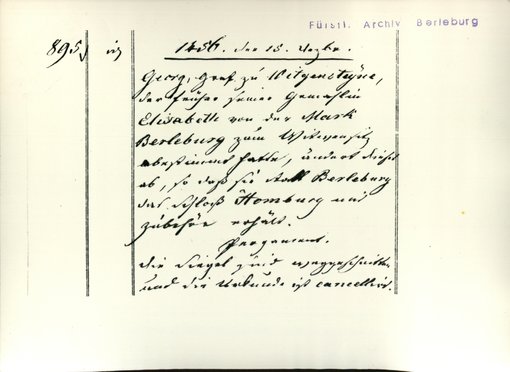 Fürstl. Archiv Berleburg
895,
1456. den 15. Dezbr.
Georg, Graf zu Witgensteyne,
der früher seiner Gemahlin
Elisabeth von der Mark
Berleburg zum Witwensitz
bestimmt hatte, ändert dieses
ab, so daß sie statt Berleburg
das Schloß Homburg und
Zubehör erhält.
Pergament.
die Siegel sind weggeschnitten
und die Urkunde ist cancellirt.